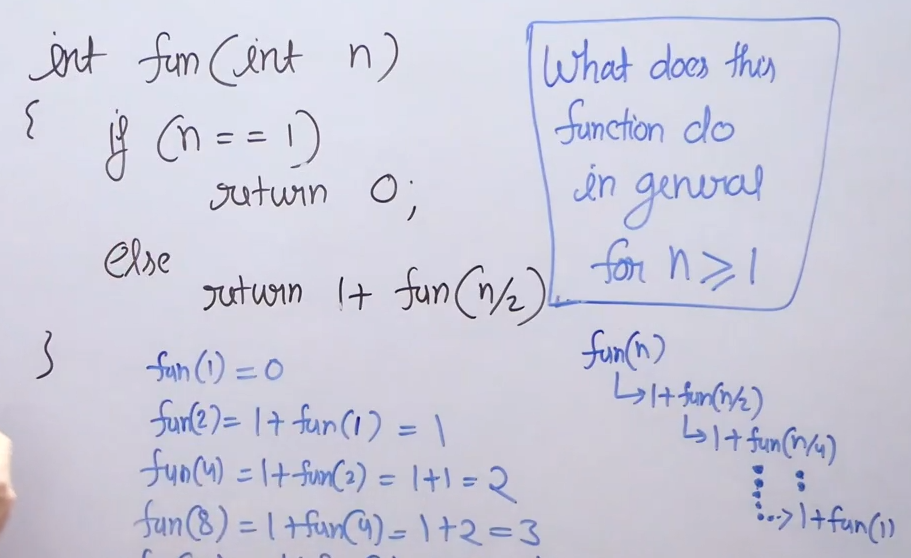 int fun(int n)
{
if (n == 1)
return 0;
else
return 1 + fun(n/2)
}
What does this
function do
in general
for n ⩾ 1
fun(1) = 0
fun(2) = 1 + fun(1) = 1
fun(4) = 1 + fun(2) = 1+1 = 2
fun(8) = 1 + fun(4) = 1+2 = 3
fun(n)
↳ 1 + fun(n/2)
↳ 1 + fun(n/4)
⋮ ⋮
..→ 1 + fun(1)